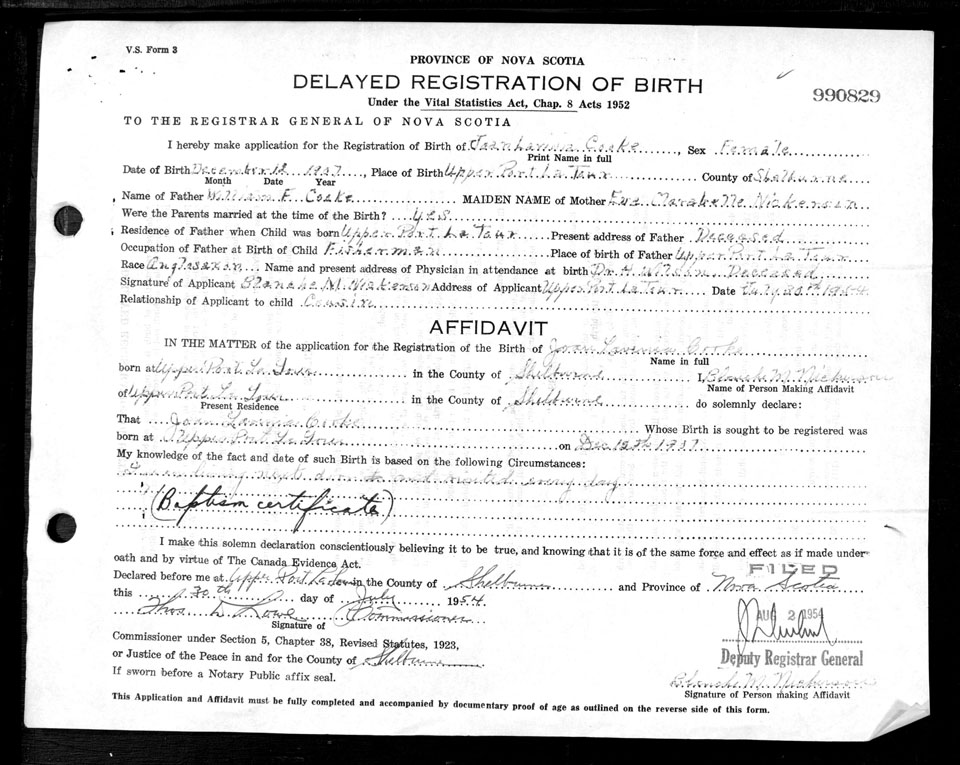 V.S. Form 3
PROVINCE OF NOVA SCOTIA
DELAYED REGISTRATION OF BIRTH
990829
Under the Vital Statistics Act, Chap. 8 Acts 1952
TO THE REGISTRAR GENERAL OF NOVA SCOTIA
I hereby make application for the Registration of Birth of Joan Cooke, Sex Female
Print Name in full
Date of Birth December 12 1937, Place of Birth Upper Port La Tour County of Shelburne
Month Date Year
Name of Father William F. Cooke MAIDEN NAME of Mother Eve Clarabelle Nickerson
Were the Parents married at the time of the Birth? Yes
Residence of Father when Child was born Upper Port La Tour Present address of Father Deceased
Occupation of Father at Birth of Child Fisherman Place of birth of Father Upper Port La Tour
Race Anglo saxon Name and present address of Physician in attendance at birth Dr. H. Wilson Deceased
Signature of Applicant Blanche M. Nickerson Address of Applicant Upper Port La Tour Date July 30th 1954
Relationship of Applicant to child Cousin
AFFIDAVIT
IN THE MATTER of the application for the Registration of the Birth of Joan Cooke
Name in full
born at Upper Port La Tour in the County of Shelburne I, Blanche M. Nickerson
Name of Person Making Affidavit
of Upper Port La Tour in the County of Shelburne do solemnly declare:
Present Residence
That Joan Cooke Whose Birth is sought to be registered was
born at Upper Port La Tour on Dec 12th 1937
My knowledge of the fact and date of such Birth is based on the following Circumstances:
living next door to and visited every day
(Baptism certificate)
I make this solemn declaration conscientiously believing it to be true, and knowing that it is of the same force and effect as if made under
oath and by virtue of The Canada Evidence Act.
FILED
Declared before me at Upper Port La Tour in the County of Shelburne and Province of Nova Scotia
this 30th day of July 1954
AUG 2 1954
Thos L Rowe Commissioner
Signature of
Commissioner under Section 5, Chapter 38, Revised Statutes, 1923,
or Justice of the Peace in and for the County of Shelburne
Deputy Registrar General
If sworn before a Notary Public affix seal.
Blanche M. Nickerson
Signature of Person making Affidavit
This Application and Affidavit must be fully completed and accompanied by documentary proof of age as outlined on the reverse side of this form.